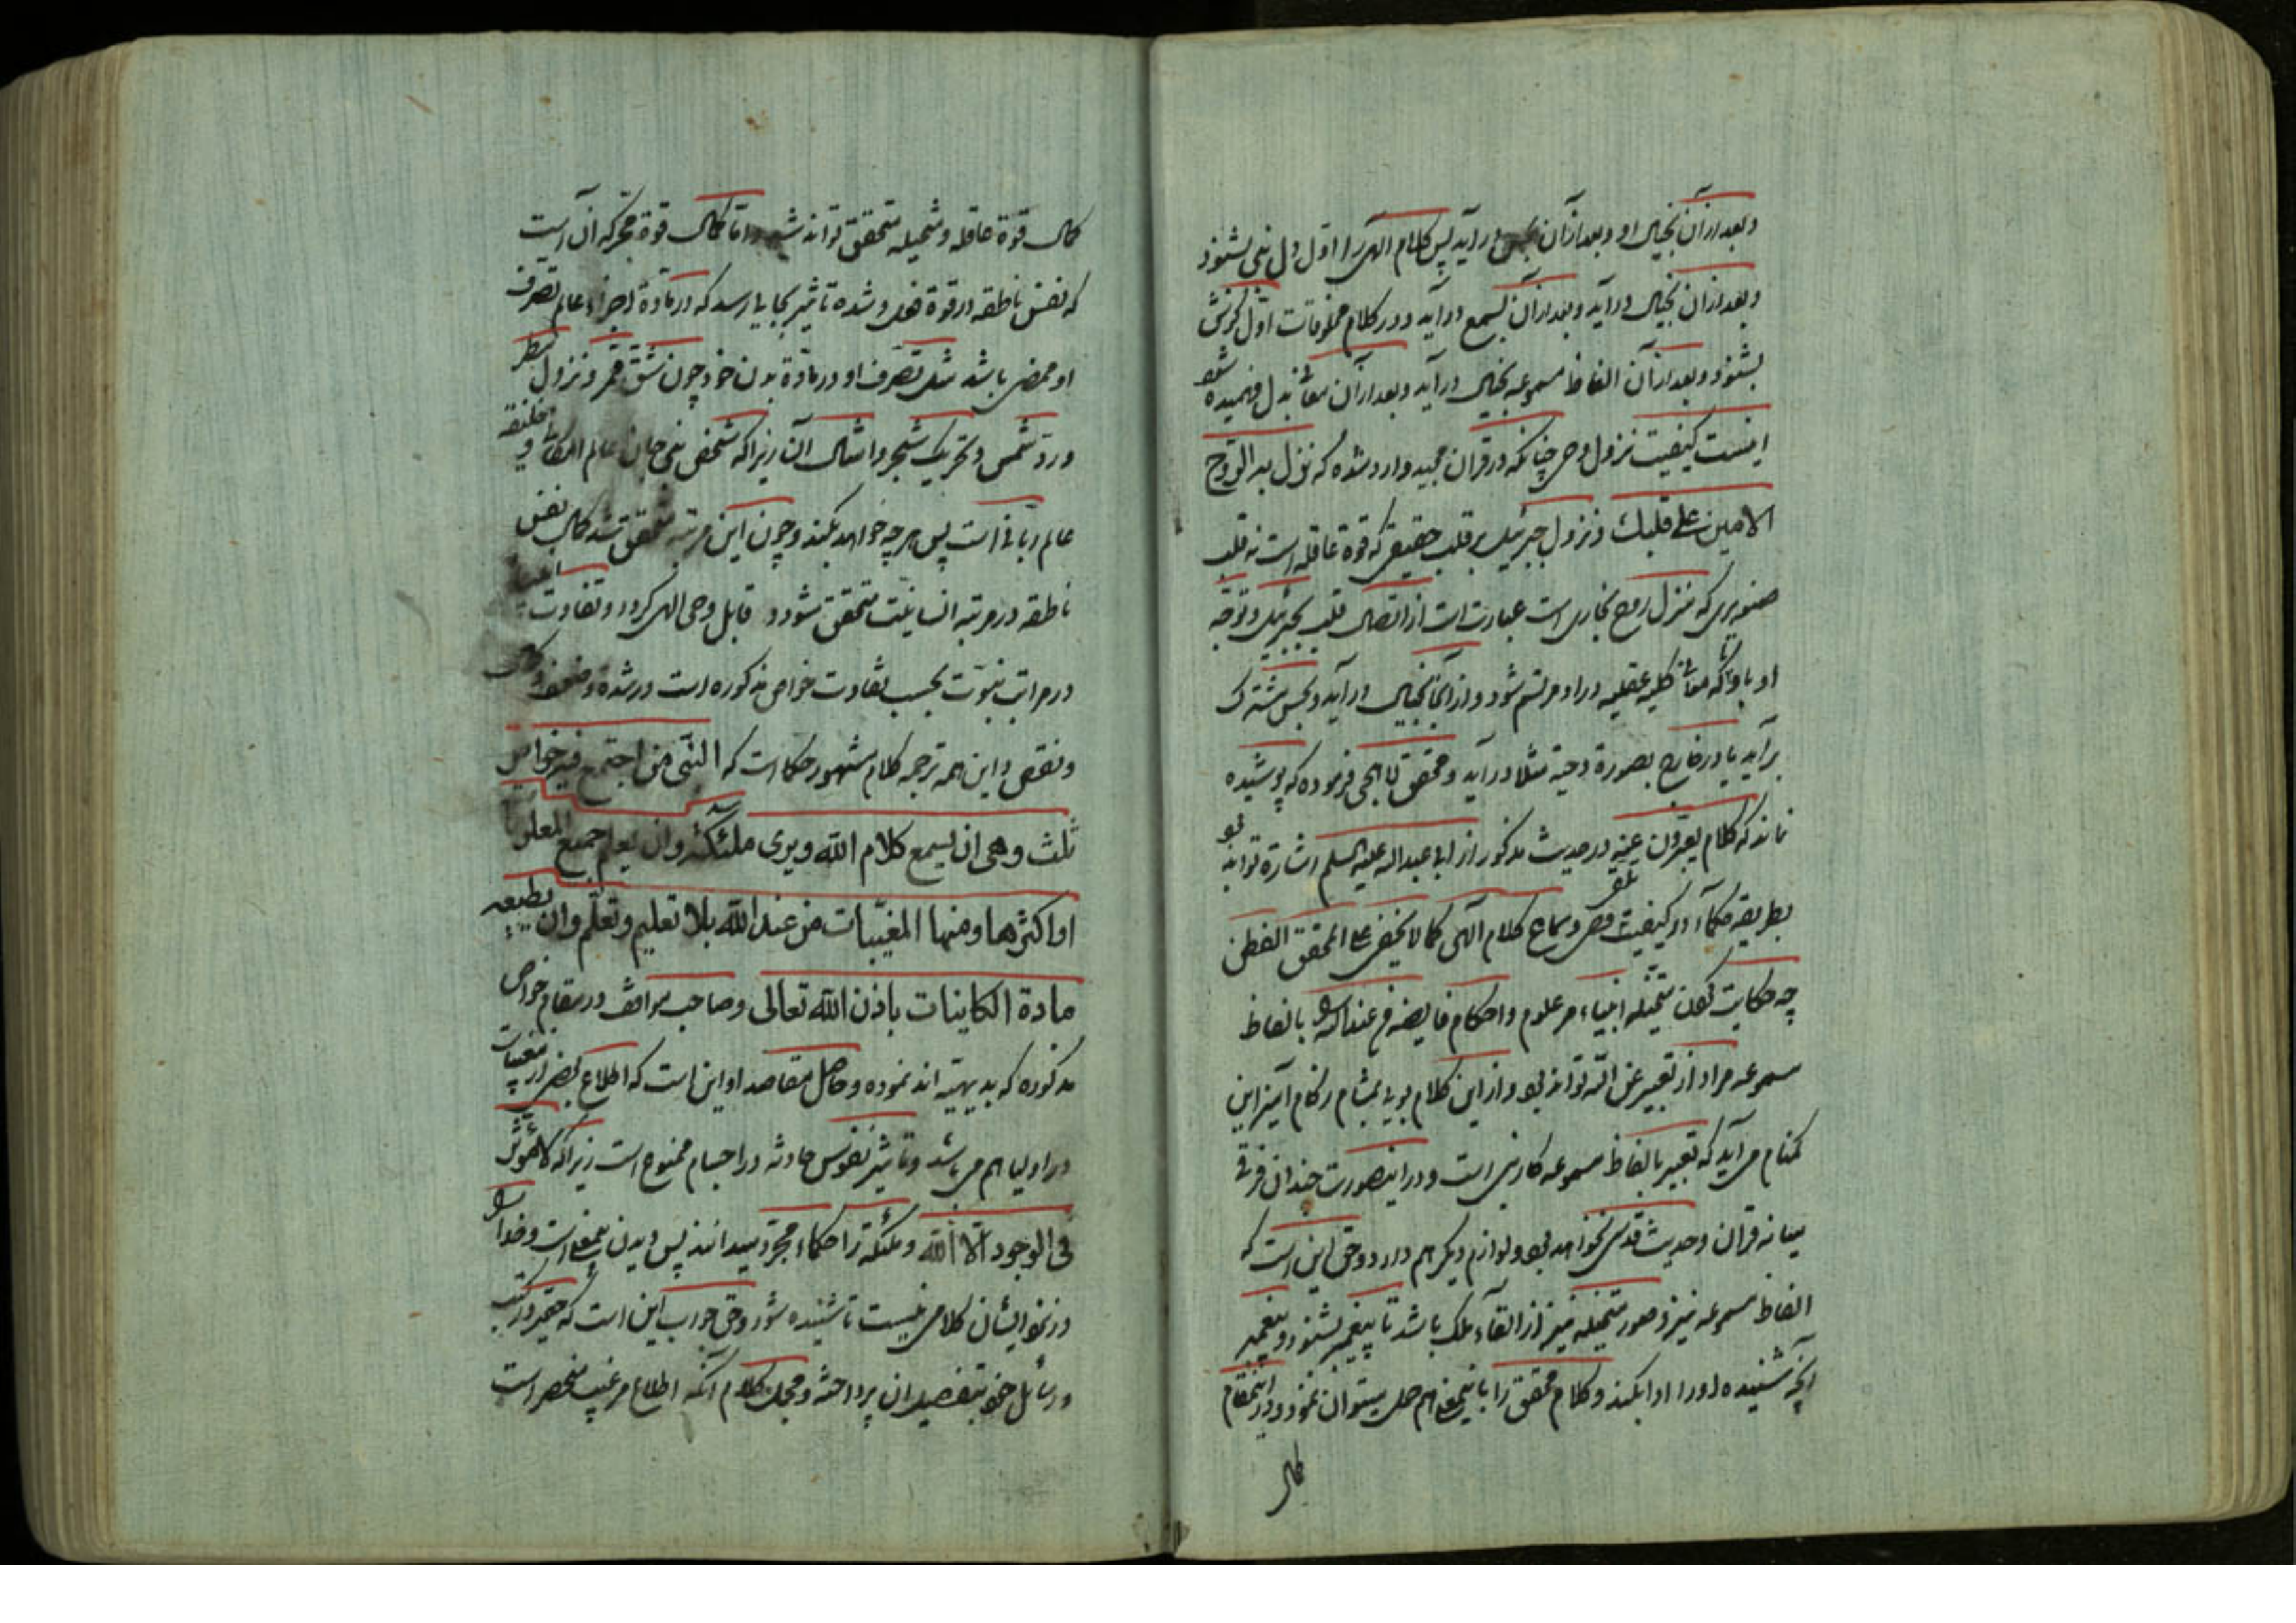 وبعد ازان بخیال او وبعد ازان بحس در آید پس کلام الهی را اول دل نبی بشنود
وبعد ازان بخیال در آید وبعد ازان بسمع در آید ودر کلام مخلوقات اول گوش
بشنود وبعد ازان الفاظ مسموعه بخیال در آید وبعد ازان معانی بدل فهمیده شود
اینست کیفیت نزول وحی چنانکه در قران مجید وارد شده که نزل به الروح
الامین علی قلبک ونزول جبرئیل بر قلب حقیقی که قوة عاقله است نه قلب
صنوبری که منزل روح بخاری است عبارت است از اتصال قلب بجبرئیل وتوجه
او باو تا که معانی کلیه عقلیه در او مرتسم شود واز آنجا بخیال در آید وبحس مشترک
بر آید یا در خارج بصورة دحیه مثلا در آید ومحقق لاهجی فرموده که پوشیده
نماند که کلام یعبرون عنه در حدیث مذکور از ابی عبدالله علیه السلم اشارة تواند بود
بطریقه حکماء در کیفیت تلقی وحی وسماع کلام الهی کما لا یخفی علی المحقق الفطن
چه حکایت کردن متخیله انبیاء مر علوم واحکام فایضه من عند الله را بالفاظ
مسموعه مراد از تعبیر عن الله تواند بود واز این کلام بویی بمشام زکام آمیز این
گمنام می آید که تعبیر بالفاظ مسموعه کار نبی است ودر اینصورت چندان فرقی
میانه قران وحدیث قدسی نخواهد بود ولوازم دیگر هم دارد وحق این است که
الفاظ مسموعه نیز وصور متخیله نیز از القاء ملک باشد تا پیغمبر بشنود وپیغمبر
آنچه شنیده اورا ادا بکند وکلام محقق را باینمعنی هم حمل میتوان نمود ودر اینمقام
کمال
کمال قوة عاقله ومتخیله متحقق تواند شد واما کمال قوة محرکه آن است
که نفس ناطقه در قوة فعل وشده تاثیر بجایی رسد که در مادة اجزاء عالم تصرف
او ممضی باشد مثل تصرف او در مادة بدن خود چون شق قمر ونزول مطر
ورد شمس وتحریک شجر وامثال آن زیرا که شخص نبی جان عالم امکانی وخلیفه
عالم ربانی است پس هر چه خواهد بکند وچون این مرتبه متحقق شد کمال نفس
ناطقه در مرتبه انسانیت متحقق شود وقابل وحی الهی گردد وتفاوت
در مراتب نبوت بحسب تفاوت خواص مذکوره است در شده وضعف وکمال
ونقص واین همه ترجمه کلام مشهور حکما است که النبی من اجتمع فیه خواص
ثلث وهی ان یسمع کلام الله ویری ملئکته وان یعلم جمیع المعلومات
او اکثرها ومنها المغیبات من عند الله بلا تعلیم وتعلم وان یطیعه
مادة الکاینات باذن الله تعالی وصاحب مواقف در مقام خواص
مذکوره که بدیهیته اند نموده وحاصل مقاصد او این است که اطلاع بعضی از مغیبات
در اولیا هم می باشد وتاثیر نفوس حادثه در اجسام ممنوع است زیرا که لا مؤثر
فی الوجود الا الله وملئکه را حکماء مجرد میدانند پس دیدن بیمعنی است وخدا را
در نزد ایشان کلامی نیست تا شنیده شود وحق جواب این است که حقیر در کتب
ورسائل خود بتفصیل ان پرداخته ومجمل کلام آنکه اطلاع بر غیب منحصر است